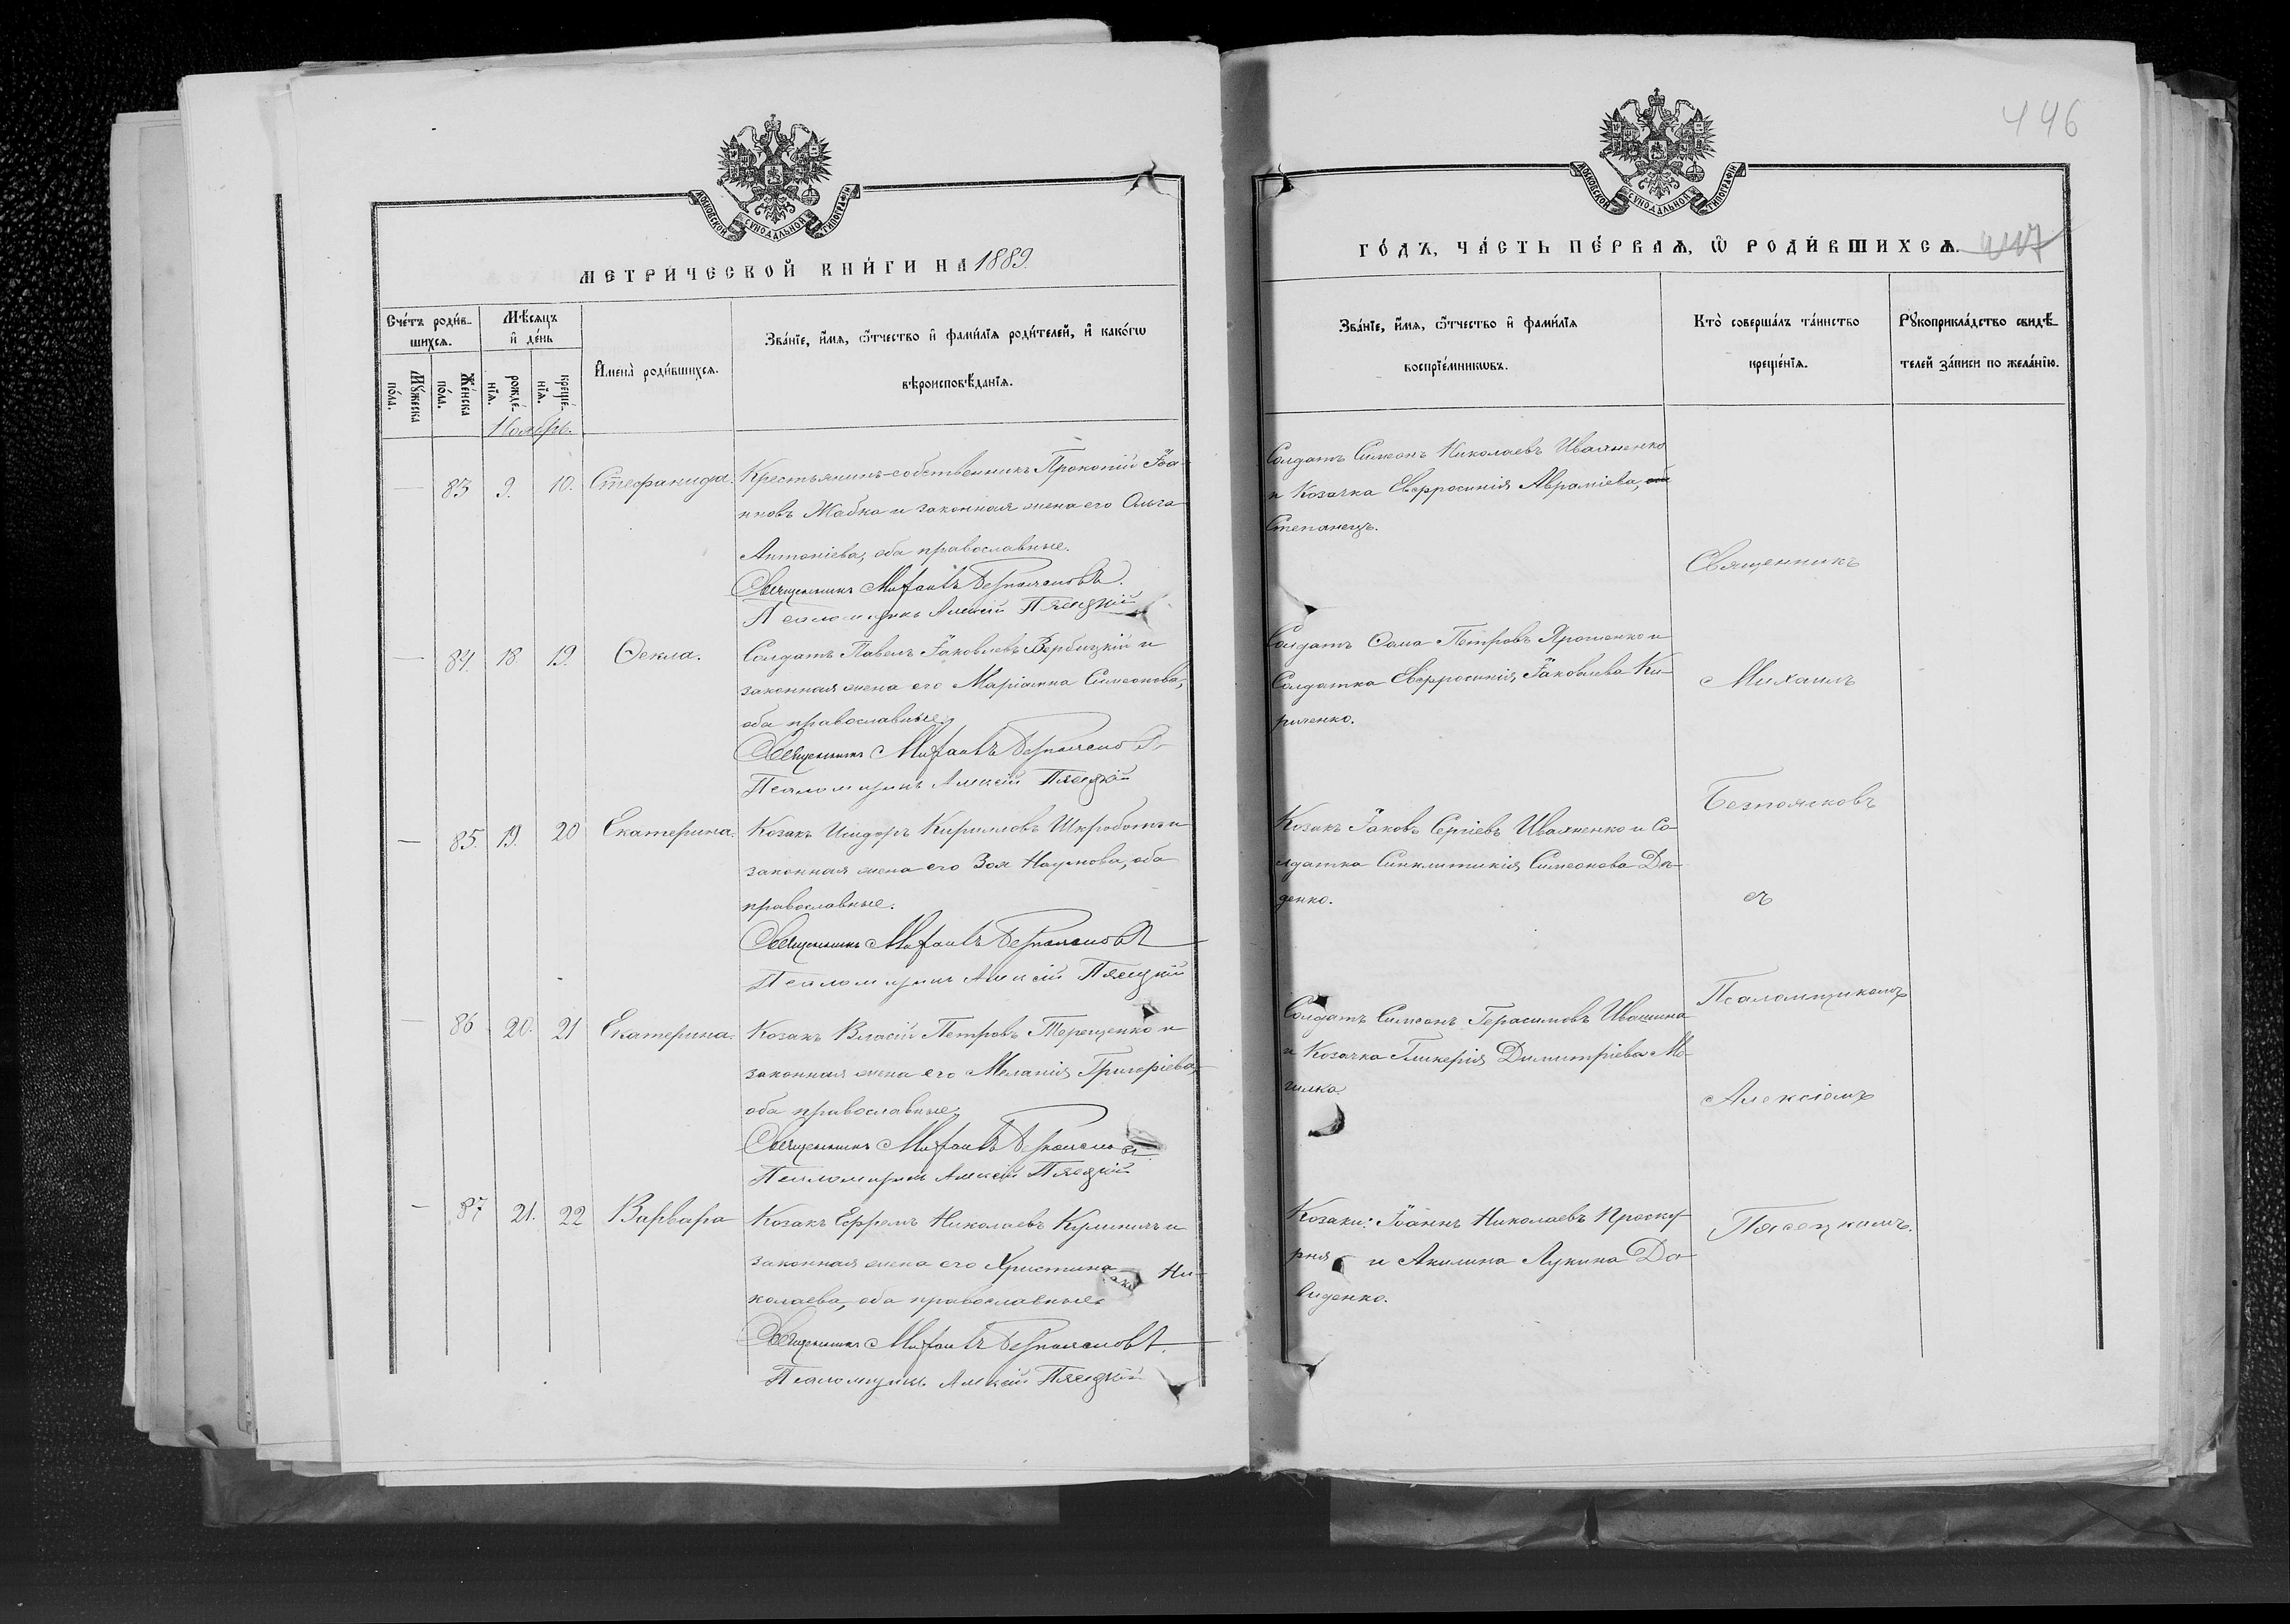 МОСКОВСКОЙ СѴНОДАЛЬНОЙ ТИПОГРАФІИ
МЕТРИ́ЧЕСКОЙ КНИ́ГИ НА 1889.
Сче́тъ роди́вшихсѧ.
Мꙋ́жеска по́ла.
Же́нска по́ла.
Мѣ́сѧцъ и҆ де́нь
рожде́нїѧ.
креще́нїѧ.
И҆мена̀ роди́вшихсѧ.
Зва́нїе, и҆́мѧ, ѻ҆́тчество и҆ фами́лїѧ роди́телей, и҆ како́гѡ
вѣроисповѣ́данїѧ.
Ноябрь.
— 83 9. 10. Стефанида. Крестьянинъ-собственникъ Прокопій Іоа-
нновъ Жабка и законная жена его Ольга
Антоніева, оба православные.
Священникъ Михаилъ Безпояcковъ.
Псаломщикъ Алексій Пясецкій
— 84. 18 19. Ѳекла. Солдатъ Павелъ Іаковлевъ Вербицкій и
законная жена его Маріамна Симеонова,
оба православные.
Священникъ Михаилъ Безпоясковъ
Псаломщикъ Алексій Пясецкій
— 85. 19. 20 Екатерина. Козакъ Исидоръ Кирилловъ Шкроботъ и
законная жена его Зоя Наумова, оба
православные.
Священникъ Михаилъ Безпоясковъ
Псаломщикъ Алексій Пясецкій
— 86 20. 21 Екатерина. Козакъ Власій Петровъ Терещенко и
законная жена его Меланія Григоріева,
оба православные.
Священникъ Михаилъ Безпоясковъ
Псаломщикъ Алексій Пясецкій
— 87 21. 22 Варвара Козакъ Ефремъ Николаевъ и
законная жена его Христина Ни-
колаева, оба православные.
Священникъ Михаилъ Безпоясковъ.
Псаломщикъ Алексій Пясецкій
446
МОСКОВСКОЙ СѴНОДАЛЬНОЙ ТИПОГРАФІИ
ГО́ДЪ, ЧА́СТЬ ПЕ́РВАѦ, Ѽ РОДИ́ВШИХСѦ. 447
Зва́нїе, и҆́мѧ, ѻ҆́тчество и҆ фами́лїѧ
воспрїе́мникѡвъ.
Кто̀ соверша́лъ та́инство
креще́нїѧ.
Рꙋкоприкла́дство свидѣ́-
телей за́писи по жела́нїю.
Солдатъ Симеонъ Николаевъ Иваненко
и Козачка Евфросинія Авраміева, оба
Степанецъ.
Солдатъ Ѳома Петровъ Ярошенко и
Солдатка Евфросинія Іаковлева Ки-
риченко.
Козакъ Іаковъ Сергіевъ Иваненко и Со-
лдатка Синклитикія Симеонова Ди-
денко.
Солдатъ Симеонъ Герасимовъ Ивашина
и Козачка Гликерія Димитріева Мо-
гилка
Козаки: Іоаннъ Николаевъ Проску-
рня и Акилина Лукина Да-
виденко.
Священникъ
Михаилъ
Безпоясковъ
съ
Псаломщикомъ
Алексіемъ
Пясецкимъ.